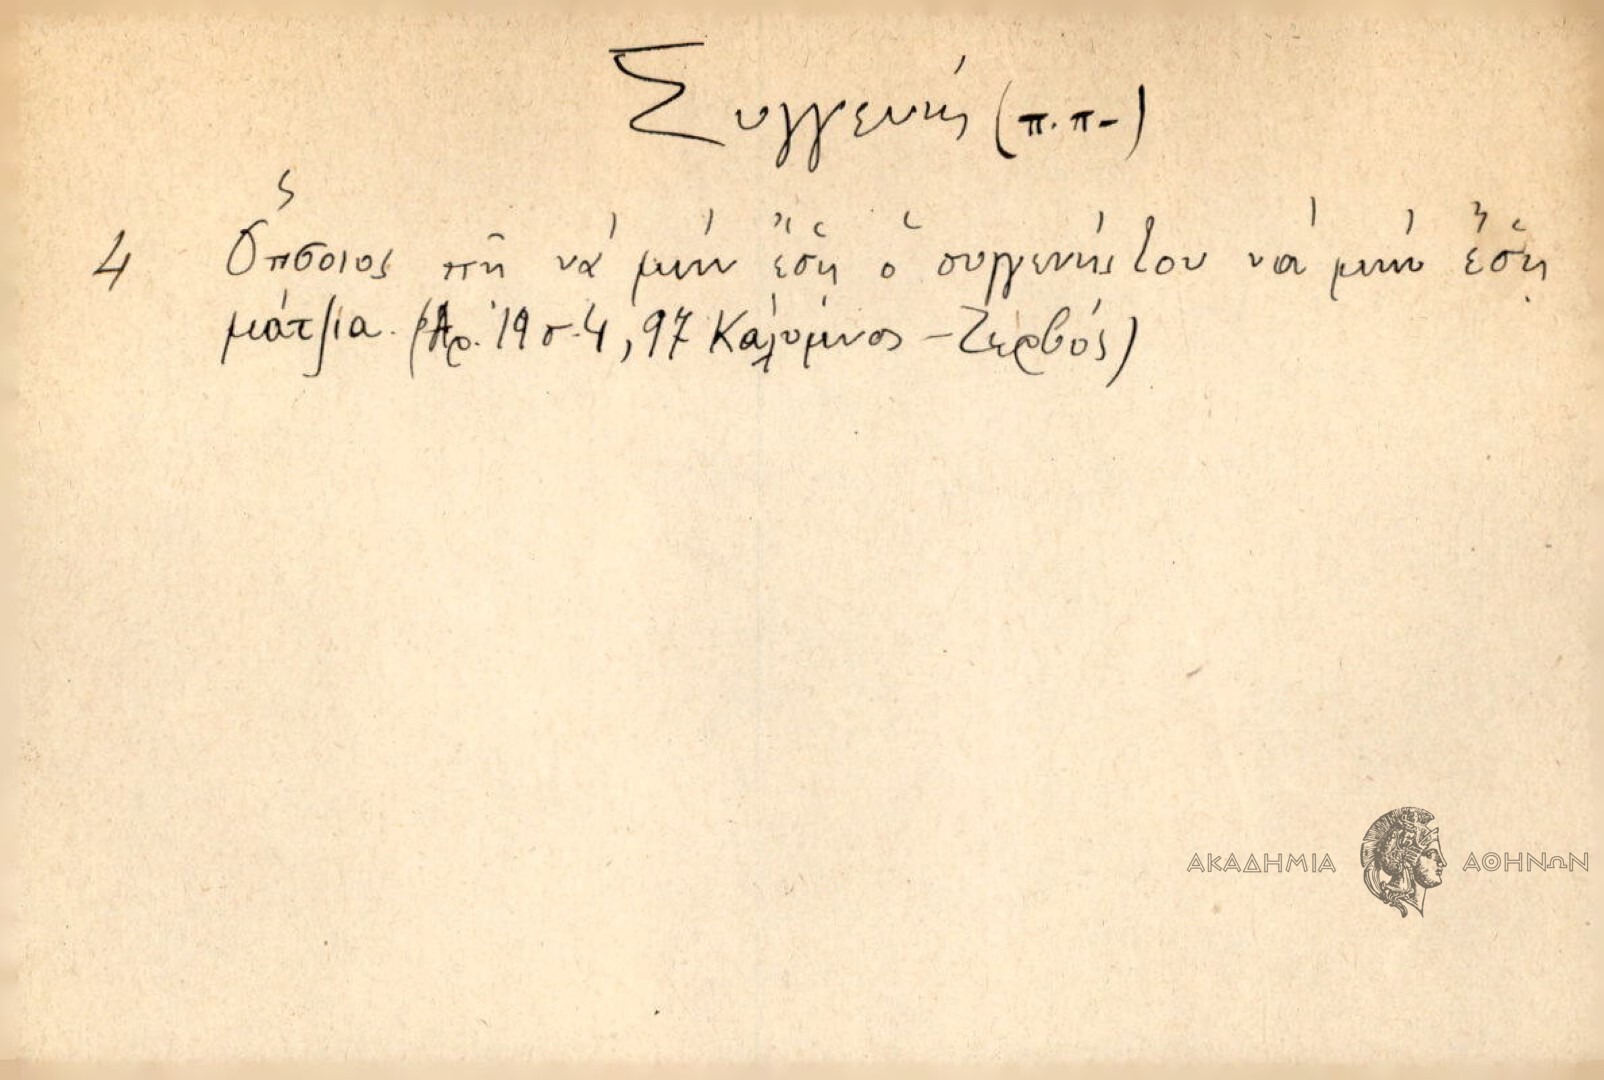 Συγγενής (π.π-)
4 Ὅπσοιος πῆ νά μήν ἔση ὁ συγγενής του νά μήν ἔση
μάτσια. (Ἀρ. 19 σ. 4, 97 Κάλυμνος - Ζερβός)
ΑΚΑΔΗΜΙΑ ΑΘΗΝΩΝ